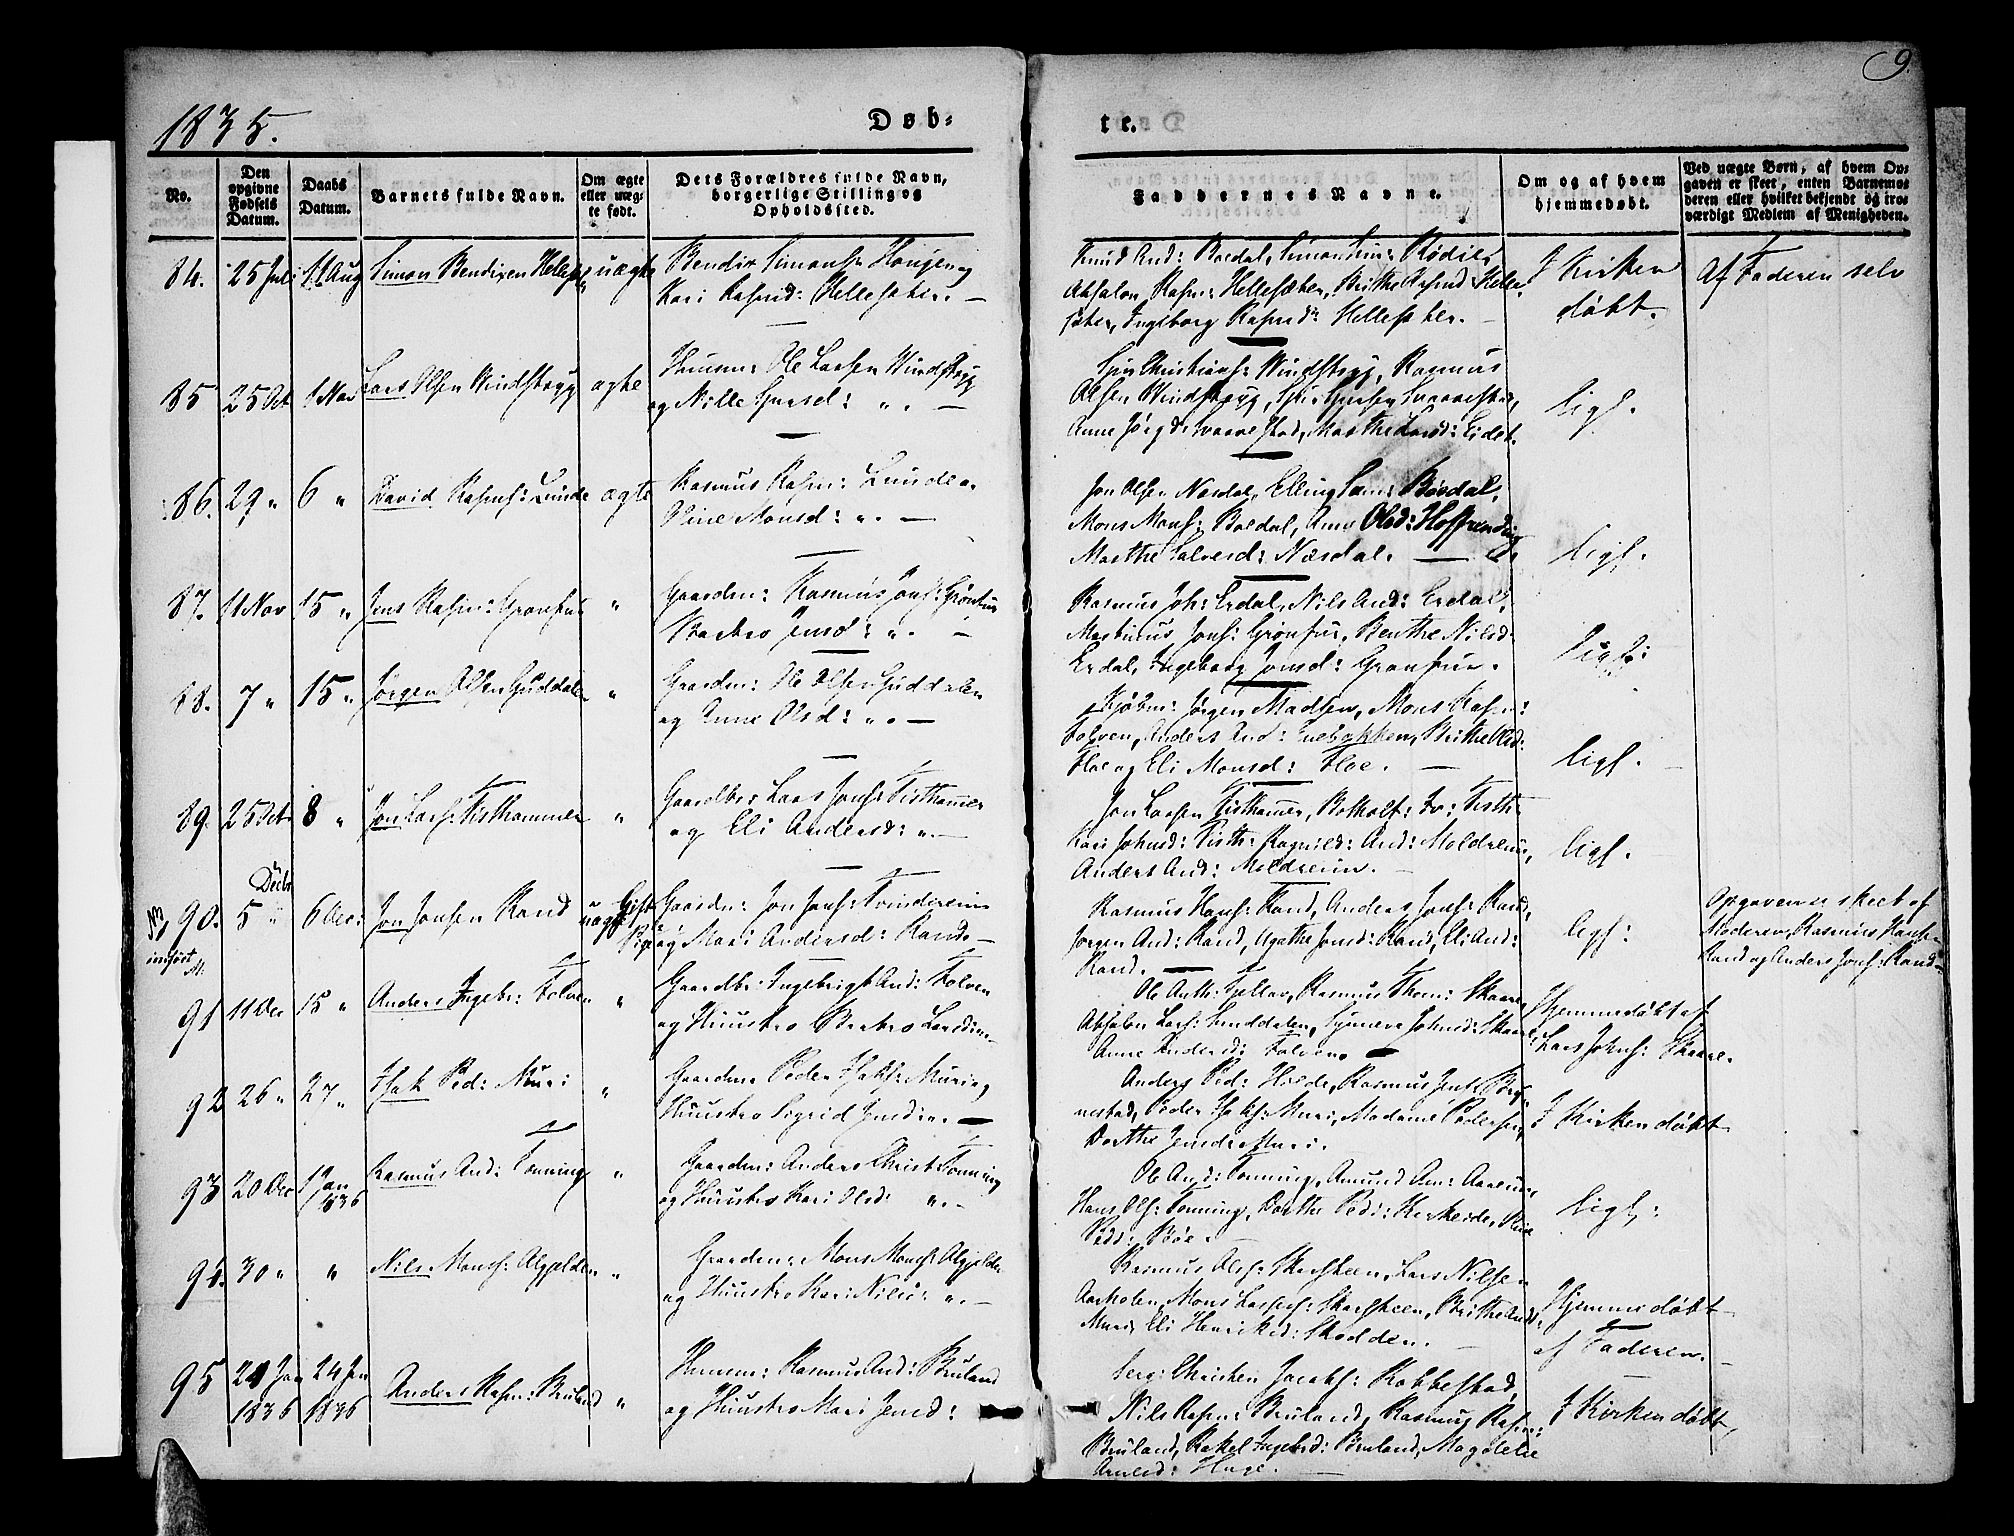 9.
1835.
Døb=
te.
No.
Den opgivne Fødsels Datum.
Daabs Datum.
Barnets fulde Navn.
Om ægte eller uæg- te født.
Dets Forældres fulde Navn, borgerlige Stilling og Opholdssted.
Faddernes Navne.
Om og af hvem hjemmedøbt.
Ved uægte Børn, af hvem Op- gaven er skeet, enten Barnemo- deren eller hvilket bekjendt og tro- værdigt Medlem af Menigheden.
84. 25 Juli 11 Aug Simon Bendixen uægte
Bendix Simons: Haugen og
Kari Rasmd: Hellesæter. —
Knud And: Boedal, Simon Sim: Rødi
Absalon Rasm: Hellesæter, Brithe Rasmd: Helle-
sæter, Ingeborg Rasmd: Hellesæter. —
I Kirken
døbt.
Af Faderen selv
85 25 Oct 1 Nov Lars Olsen Windstryg ægte
Huusm: Ole Larsen Windstryg
og Nille —
Christians: Windstryg, Rasmus
Olsen Windstryg,
Anne
ligs.
86. 29 " 6 " David Rasms: Lunde ægte
Rasmus Rasm: Lunde
Oline Monsd: ". —
Jon Olsen Nesdal, Elling Sam: Bødal,
Mons Mons: Boedal, Anne Olsd:
Marthe Nesdal. —
ligs.
87. 11 Nov 15 " Jens Rasm: Grønfur "
Gaardm: Rasmus Jons: Grønfur
Barbro Jensd: ". —
Rasmus Joh: Erdal, Nils And: Erdal,
Martinus Jons: Grønfur, Benthe Nilsd:
Erdal, Ingeborg Jonsd: Grønfur.
ligs:
88. 7 " 15 " Jørgen Olsen Guddalen "
Gaardm: Ole Olsen Guddalen
og Anne Olsd: ". —
Kjøbm: Jørgen Madsen, Mons Rasm:
Folven, Anders And: Brithe Olsd:
Floe og Eli Monsd: Floe. —
ligs.
89. 25 Oct 8 " Jon Lars: Tisthammer "
Gaardbr: Lars Jons: Tisthamer
og Eli Andersd: ". —
Jon Larsen Tisthamer, Botholf: Tisth:
Kari Johnsd: Tisth: Ragnild: And: Moldreim,
Anders And: Moldreim. —
ligs.
90. Decbr 5 " 6 Dec: Jon Jonsen Rand uægte
Gaardm: Jon Jons: Tvindereim
og Mari Andersd: Rand —
Rasmus Hans: Rand, Anders Jons: Rand,
Jørgen And: Rand, Agathe Jonsd: Rand, Eli And:
Rand. —
ligs:
Opgaven er skeet af
Moderen, Rasmus Hans:
Rand og Anders Jons: Rand.
91 11 Dec 15 " Anders Ingebr: Folven "
Gaardbr: Ingebrigt And: Folven
og Huustro Barbro Larsd: —
Ole Anth: Rasmus Thom: Skaare,
Absalon Lars: Synneva Johnsd: Skaare,
Anne Andersd: Folven.
Hjemmedøbt af
Lars Johns: Skaare.
92 26 " 27 " Isak Ped: Muri "
Gaardm: Peder Isaks: Muri og
Huustro Sigrid Jensd: —
Anders Ped: Holde, Rasmus Jens: Bry-
nestad, Peder Isaks: Muri, Madame Pedersen,
Dorthe Jensd: Muri.
I Kirken døbt
93 20 Dec 1 Jan 1836 Rasmus And: Tonning "
Gaardm: Anders Christ: Tonning
og Huustro Kari Olsd: ". —
Ole And: Tonning, Amund
Hans Ols: Tonning, Dorthe Pedd: Kirkeide,
Pedd: Bøe. —
ligs:
94. 30 " " Nils Mons: Algjelden "
Gaardm: Mons Mons: Algjelde
og Huustro Kari Nilsd: ". —
Rasmus Ols: Skarsteen, Lars Nilsen
Aarholen, Mons Skarsteen, Brithe
Muri, Eli Henriksd: Skodden. —
Hjemmedøbt
af Faderen. —
95 21 Jan 1836 24 Jan 1836 Anders Rasm: Bruland "
Huusm: Rasmus And: Bruland
og Huustro Mari Jensd:
Serg: Christen Jacobs: Robbestad,
Nils Rasm: Bruland, Rasmus Rasm:
Bruland, Rakel Ingebrd: Bruland, Magdele
Hage. —
I Kirken døbt